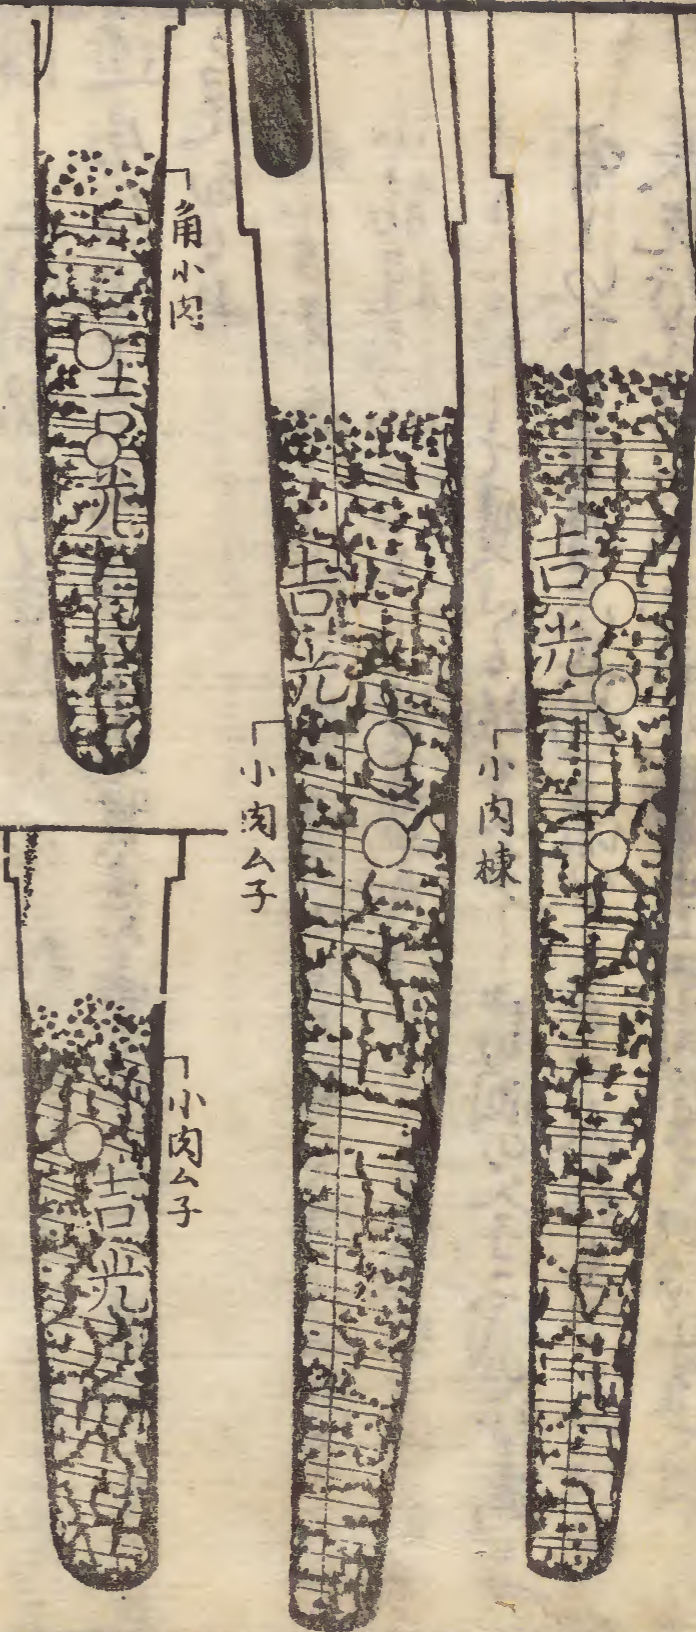 吉光
小肉棟
吉光
小肉ム子
角小肉
吉光
小肉ム子
吉光